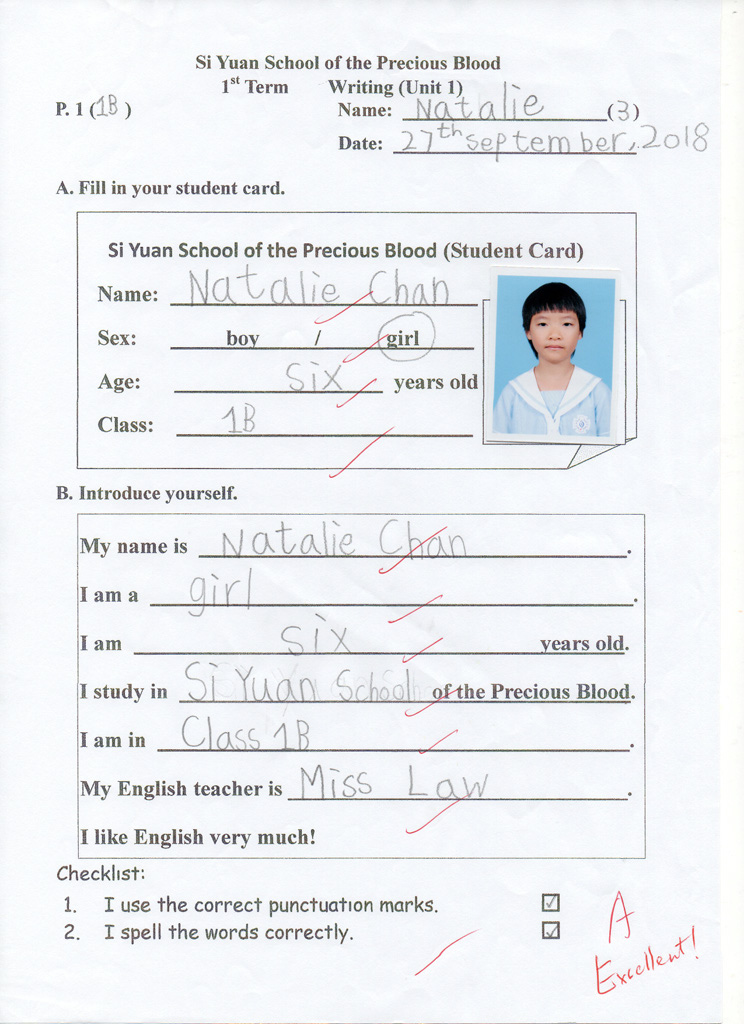 Si Yuan School of the Precious Blood
1st Term Writing (Unit 1)
P. 1 (1B) Name: Natalie (3)
Date: 27th september, 2018
A. Fill in your student card.
Si Yuan School of the Precious Blood (Student Card)
Name: Natalie Chan
Sex: boy / girl
Age: six years old
Class: 1B
B. Introduce yourself.
My name is Natalie Chan.
I am a girl.
I am six years old.
I study in Si Yuan School of the Precious Blood.
I am in Class 1B.
My English teacher is Miss Law.
I like English very much!
Checklist:
1. I use the correct punctuation marks. ☑
2. I spell the words correctly. ☑
A
Excellent!